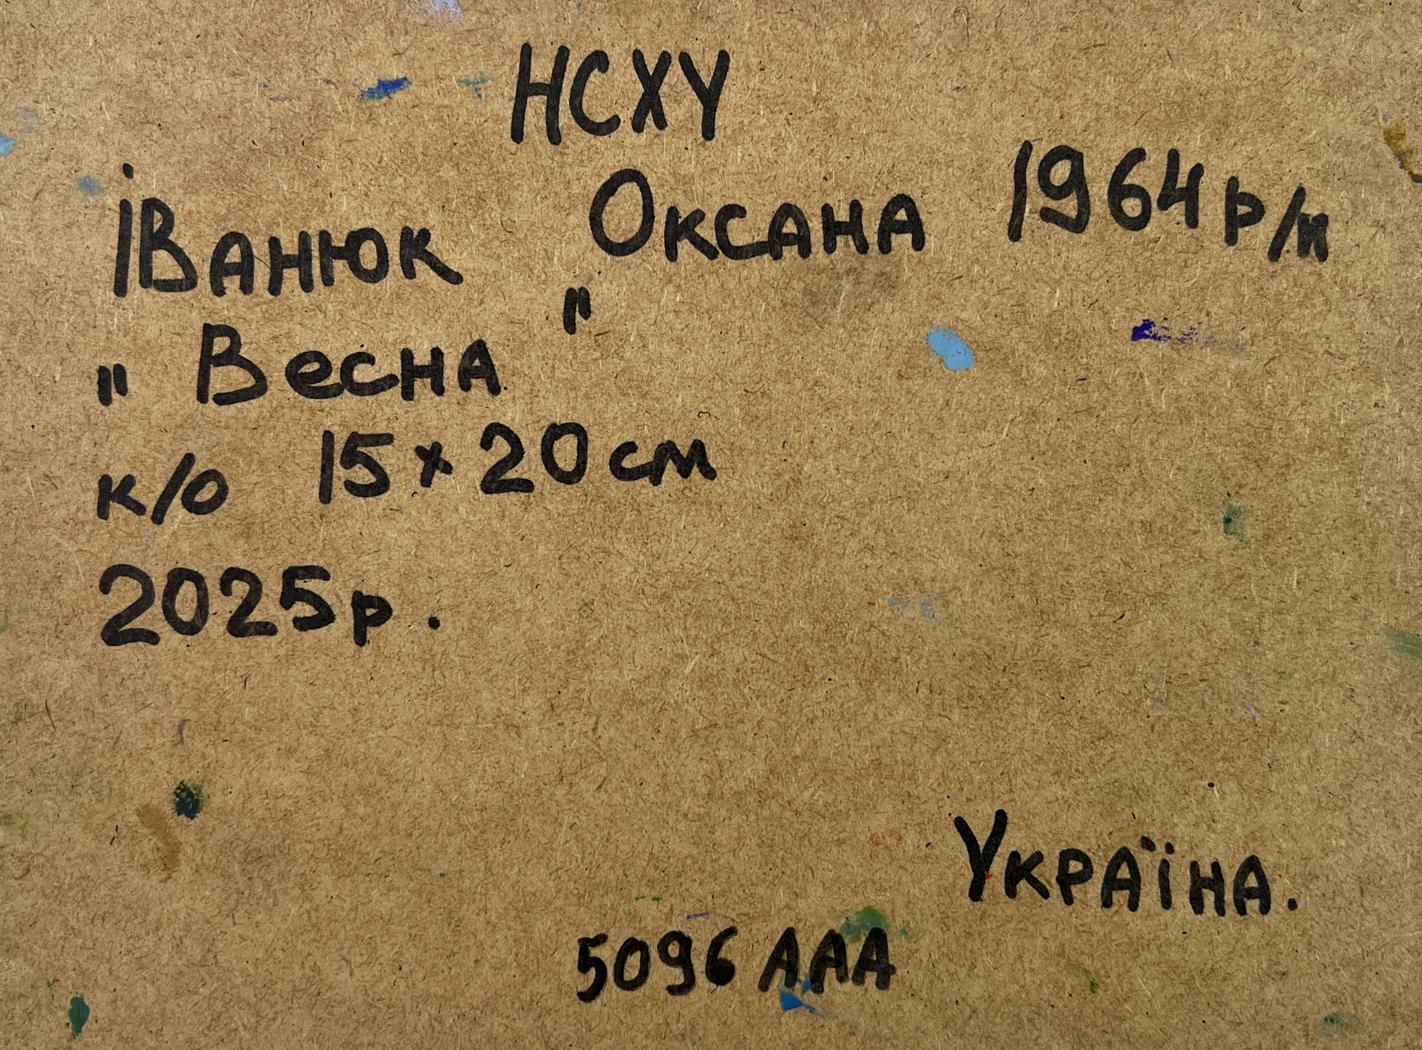 НСХУ
Іванюк Оксана 1964 р/н
" Весна "
к/о 15×20 см
2025р.
Україна.
5096 ААА